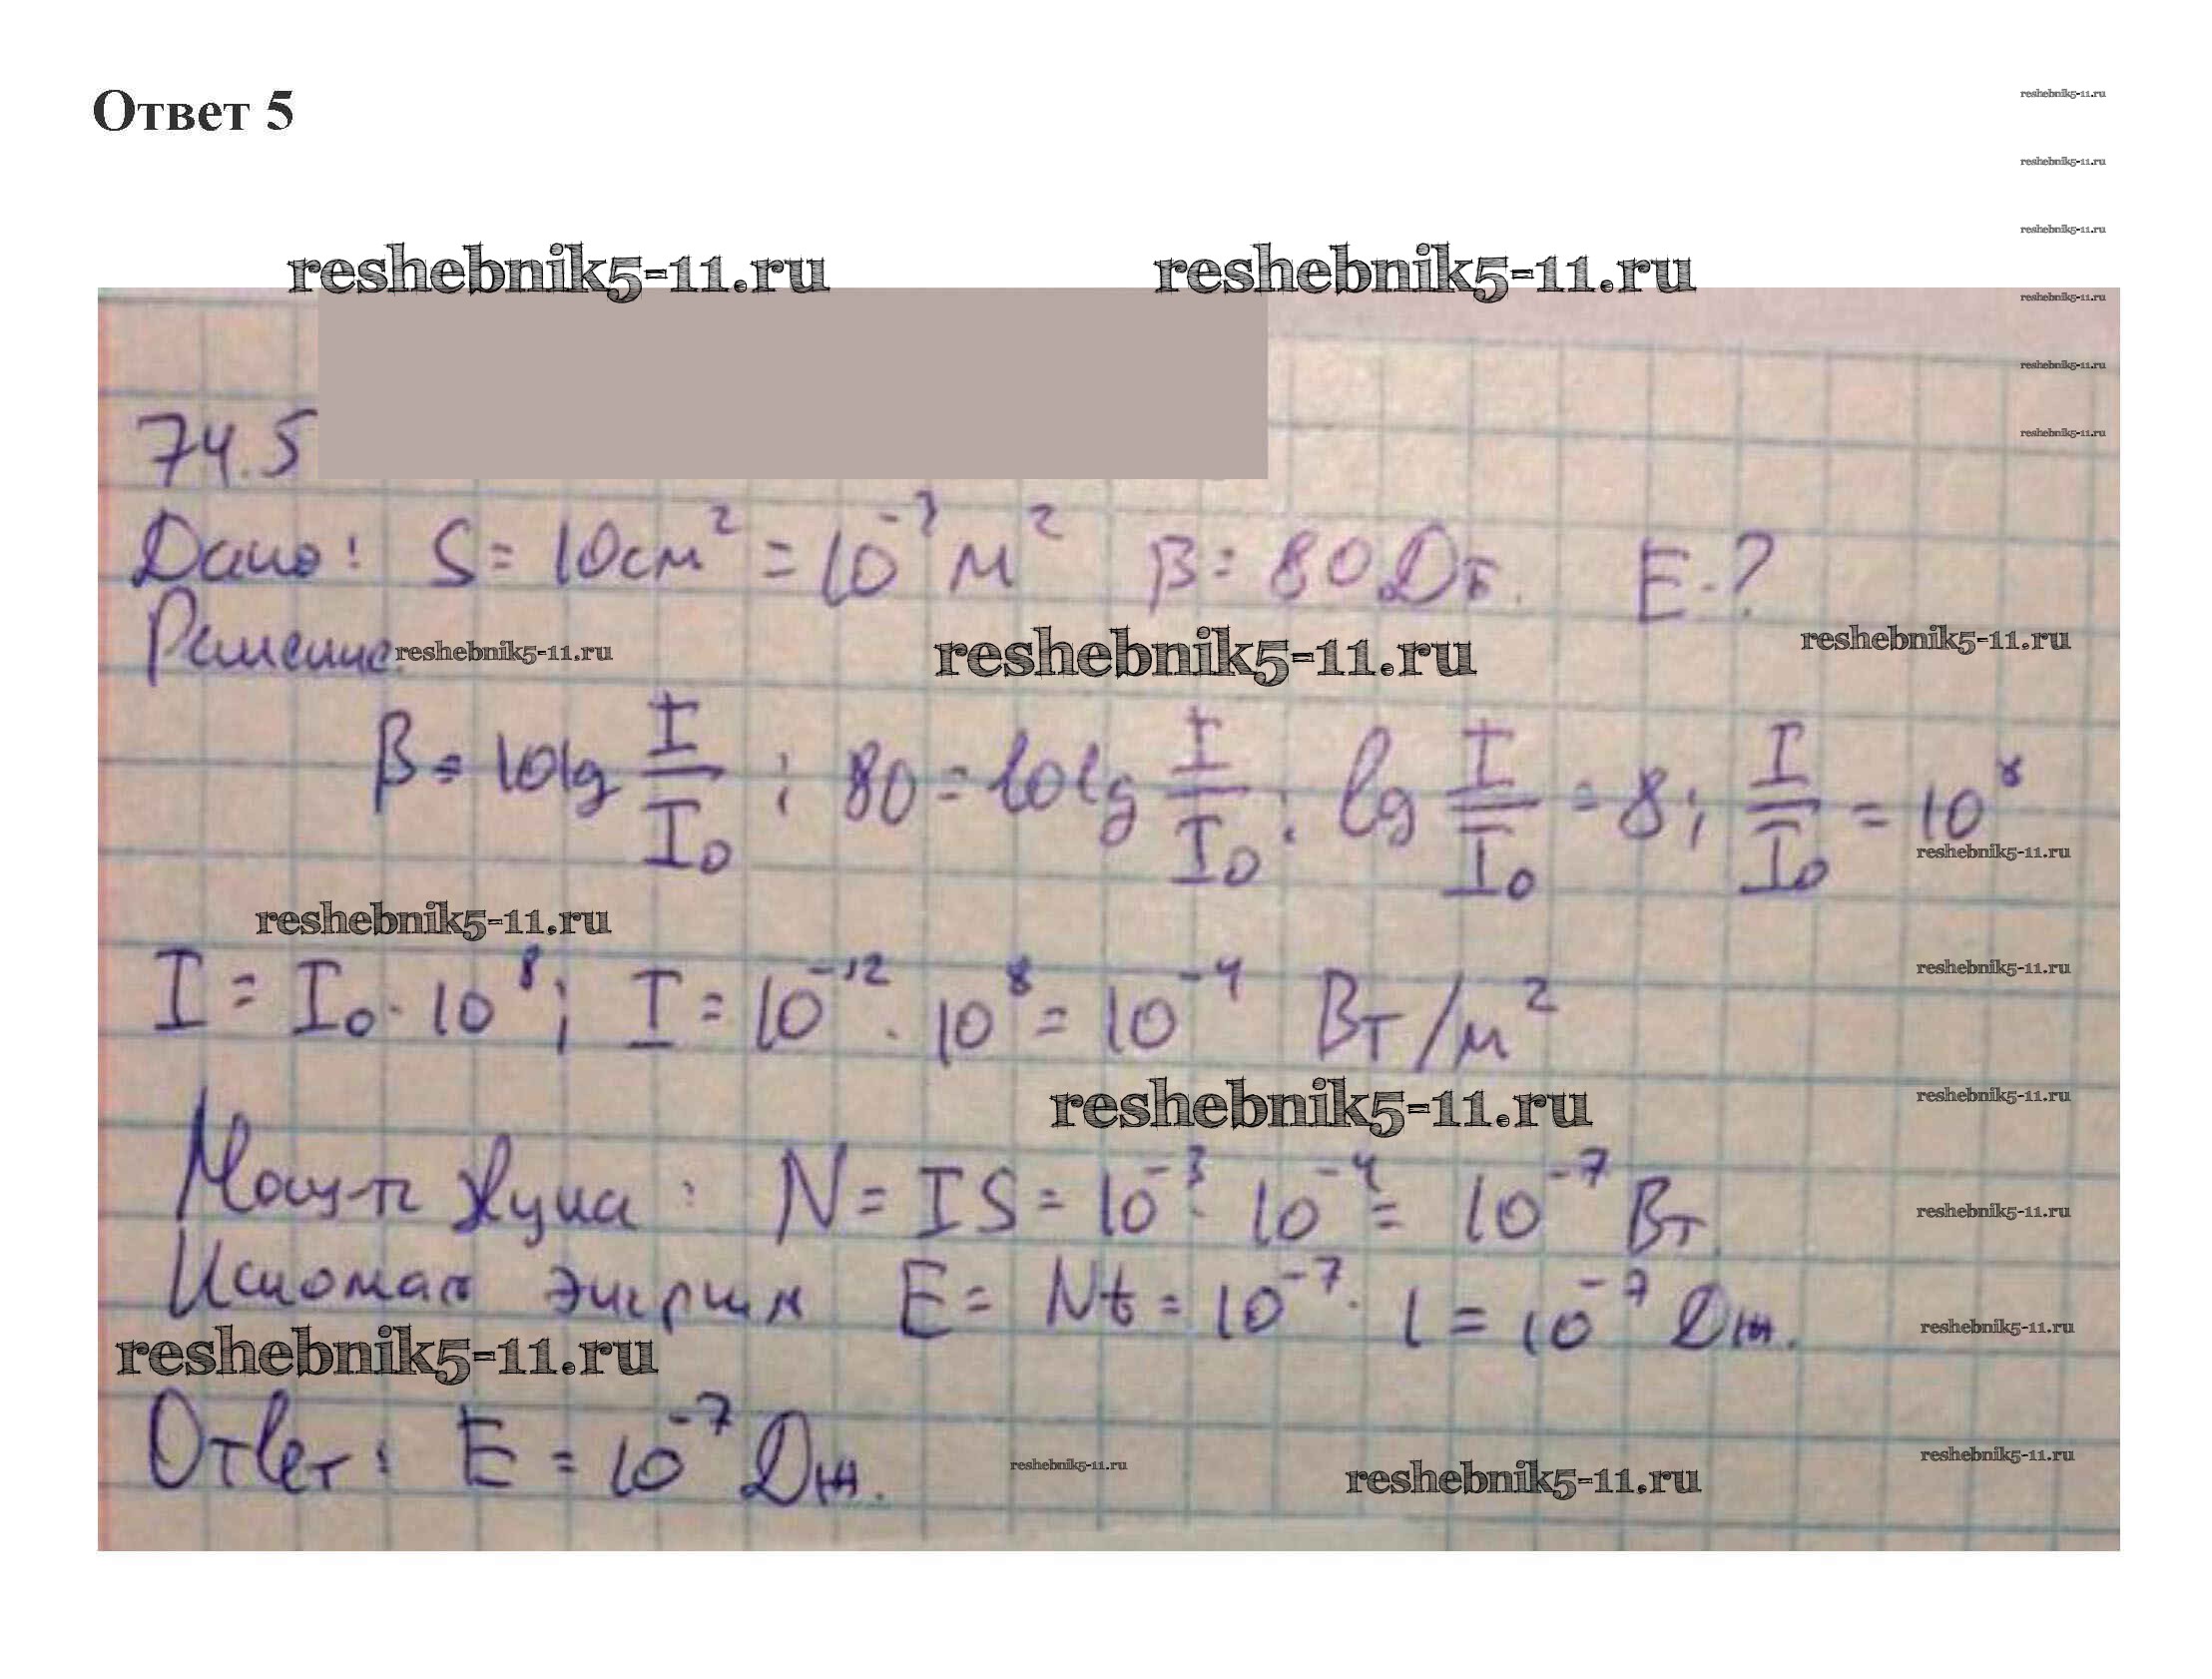 Ответ 5
reshebnik5-11.ru
reshebnik5-11.ru
reshebnik5-11.ru
reshebnik5-11.ru reshebnik5-11.ru
reshebnik5-11.ru
reshebnik5-11.ru
reshebnik5-11.ru
74.5
Дано: S = 10 см² = 10⁻³ м² β = 80 Дб. E-?
Решение reshebnik5-11.ru reshebnik5-11.ru reshebnik5-11.ru
β = 10lg I/I₀ ; 80 = 10lg I/I₀ ; lg I/I₀ = 8; I/I₀ = 10⁸
reshebnik5-11.ru
reshebnik5-11.ru
I = I₀ · 10⁸; I = 10⁻¹² · 10⁸ = 10⁻⁴ Вт/м²
reshebnik5-11.ru
reshebnik5-11.ru reshebnik5-11.ru
Мощ-ть звука: N = IS = 10⁻³ · 10⁻⁴ = 10⁻⁷ Вт
reshebnik5-11.ru
Искомая энергия E = Nt = 10⁻⁷ · 1 = 10⁻⁷ Дж.
reshebnik5-11.ru
reshebnik5-11.ru
Ответ: E = 10⁻⁷ Дж.
reshebnik5-11.ru reshebnik5-11.ru reshebnik5-11.ru